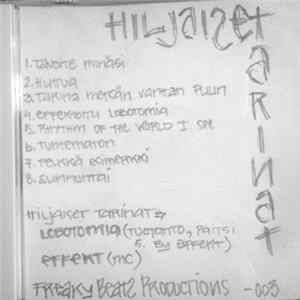 HILJAISET
TARINAT
1. TAVOITE
2. HUTUA
3. TARINA METSÄN VANHAN PUUN
4. EFFEKTOITU LOBOTOMIA
5. RHYTHM OF THE WORLD I SEE
6. TUNTEMATON
7. PELKKÄ ESIMERKKI
8. SUNNUNTAI
HILJAISET TARINAT
LOBOTOMIA (TUOTANTO, PAITSI
5. BY EFFEKT)
EFFEKT (MC)
FREAKY BEATS PRODUCTIONS -003